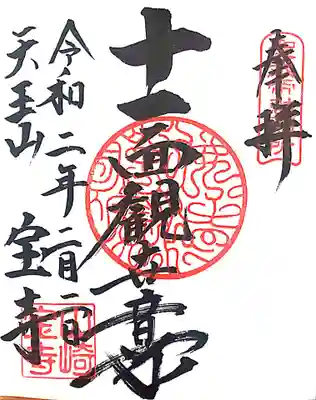 奉拝
十一面観世音
令和二年二月一日
天王山 宝寺